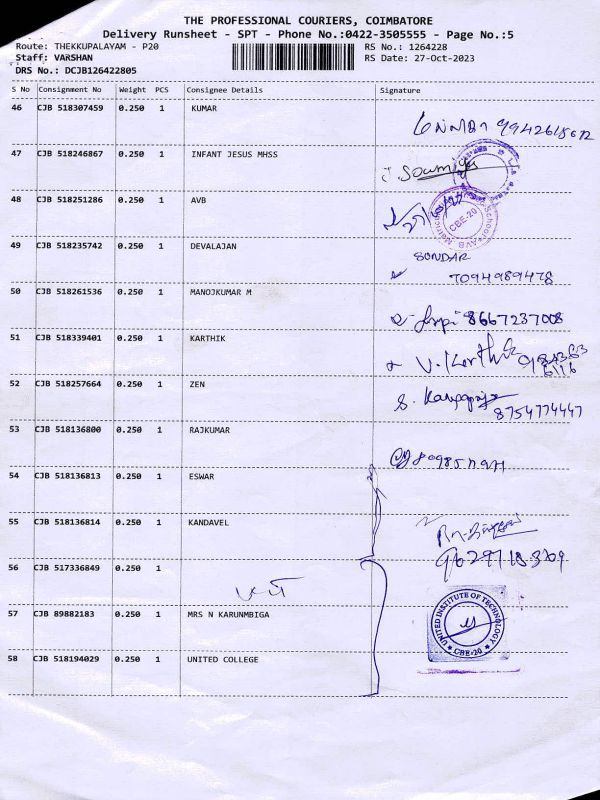 THE PROFESSIONAL COURIERS, COIMBATORE
Delivery Runsheet - SPT - Phone No.:0422-3505555 - Page No.:5
Route: THEKKUPALAYAM - P20 RS No.: 1264228
Staff: VARSHAN RS Date: 27-Oct-2023
DRS No.: DCJB126422805
S No Consignment No Weight PCS Consignee Details Signature
46 CJB 518307459 0.250 1 KUMAR
47 CJB 518246867 0.250 1 INFANT JESUS MHSS
Soumiya
48 CJB 518251286 0.250 1 AVB
CBE-20
49 CJB 518235742 0.250 1 DEVALAJAN
SUNDAR
7094989478
50 CJB 518261536 0.250 1 MANOJKUMAR M
8667237008
51 CJB 518339401 0.250 1 KARTHIK
V. Karthik
52 CJB 518257664 0.250 1 ZEN
8754774447
53 CJB 518136800 0.250 1 RAJKUMAR
54 CJB 518136813 0.250 1 ESWAR
55 CJB 518136814 0.250 1 KANDAVEL
56 CJB 517336849 0.250 1
57 CJB 89882183 0.250 1 MRS N KARUNMBIGA
UNITED INSTITUTE OF TECHNOLOGY
CBE-20
58 CJB 518194029 0.250 1 UNITED COLLEGE